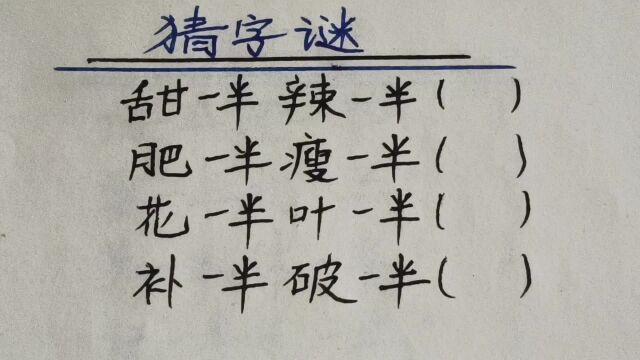 猜字谜
甜一半辣一半( )
肥一半瘦一半( )
花一半叶一半( )
补一半破一半( )